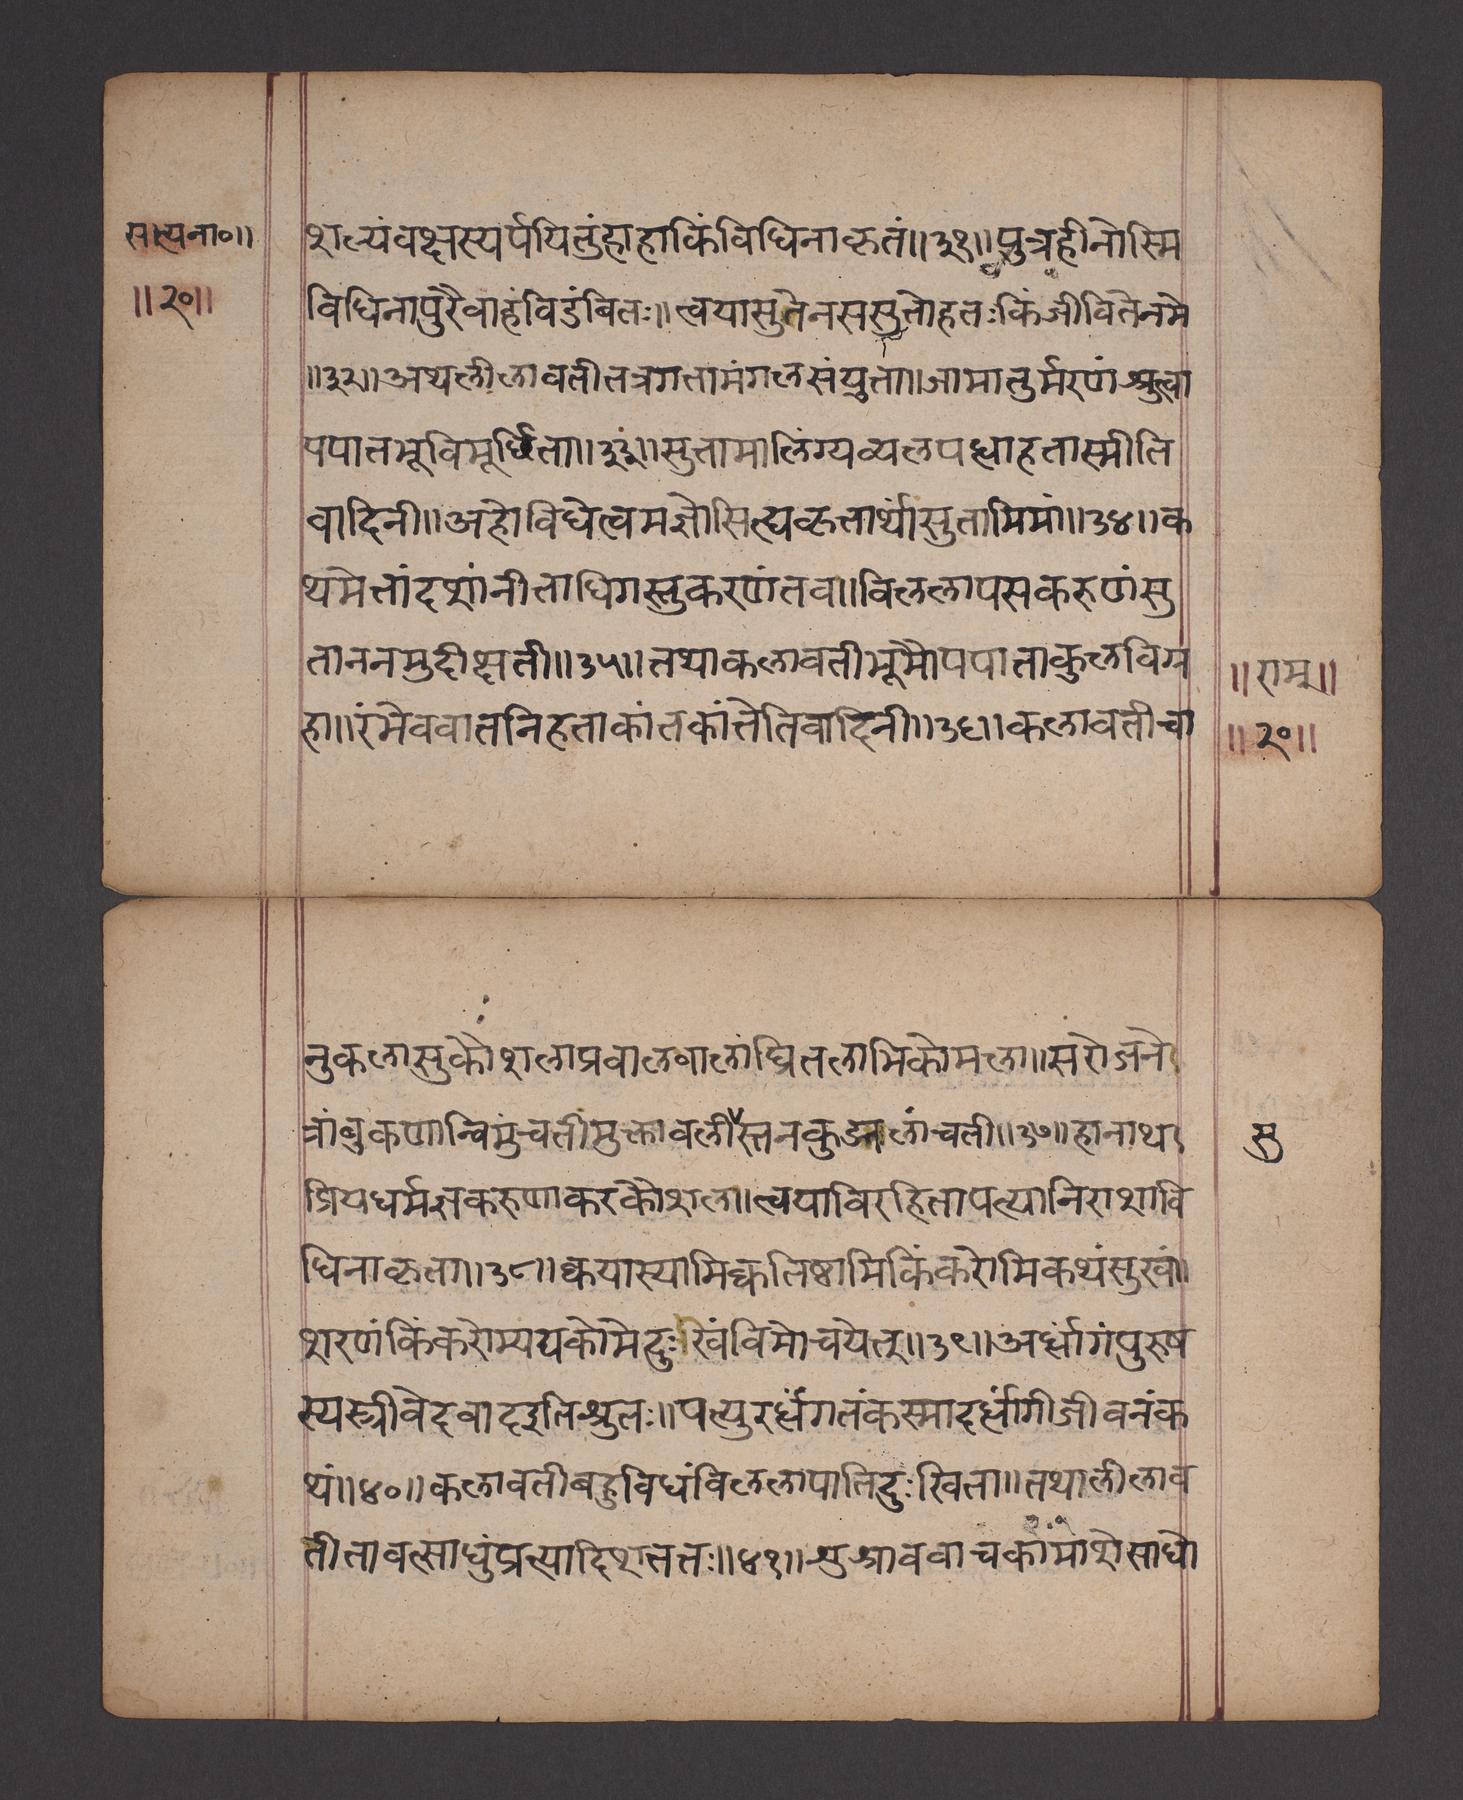 सत्यना०॥
॥२०॥
शल्यंवक्षस्यर्पयितुंहाहाकिंविधिनाकृतं॥३१॥पुत्रहीनोस्मि
विधिनापुरैवाहंविडंबितः॥त्वयासुतेनससुतोहतःकिंजीवितेनमे
॥३२॥अथलीलावतीतत्रगतामंगलसंयुता॥जामातुर्मरणंश्रुत्वा
पपातभूविमूर्छिता॥३३॥सुतामालिंग्यव्यलपद्धाहतास्मीति
वादिनी॥अहोविधेत्वमज्ञोसित्द्यकृतार्थांसुतामिमां॥३४॥क
थमेतांदशांनीताधिगस्तुकरणंतव॥विललापसकरुणंसु
ताननमुदीक्षती॥३५॥तथाकलावतीभूमौपपाताकुलविग्र
हा॥रंभेववातनिहताकांतकांतेतिवादिनी॥३६॥कलावतीचा
॥राम॥
॥२०॥
नुकलासुकौशलाप्रवालणालांघ्रितलाभिकोमला॥सरोजने
त्रांबुकणान्विमुंचतीमुक्तावलीस्तनकुड्मलांचती॥३७॥हानाथ
सु
प्रियधर्मज्ञकरुणाकरकौशल॥त्वयाविरहितापत्यानिराशावि
धिनाकृता॥३८॥क्वयास्यामिक्वतिष्ठामिकिंकरोमिकथंसुखं॥
शरणंकिंकरोम्यद्यकोमेदुःखिंविमोचयेत्॥३९॥अर्धांगंपुरुष
स्यस्त्रीवेदवाददइतिश्रुतः॥पत्युरर्धंगतंकस्मादर्धांगीजीवनंक
थं॥४०॥कलावतीबहुविधंविललापातिदुःखिता॥तथालीलाव
तीतावत्साधुंप्रत्यादिशत्ततः॥४१॥शुश्राववाचकांमाशेसाधो